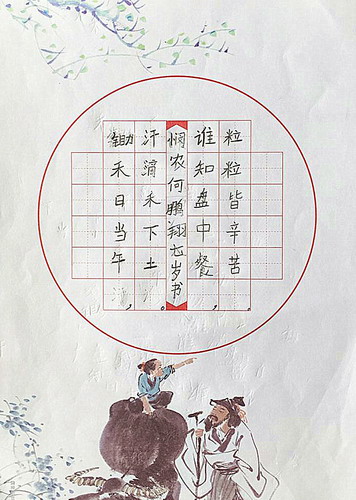 锄禾日当午，
汗滴禾下土。
悯农何鹏翔七岁书
谁知盘中餐，
粒粒皆辛苦。